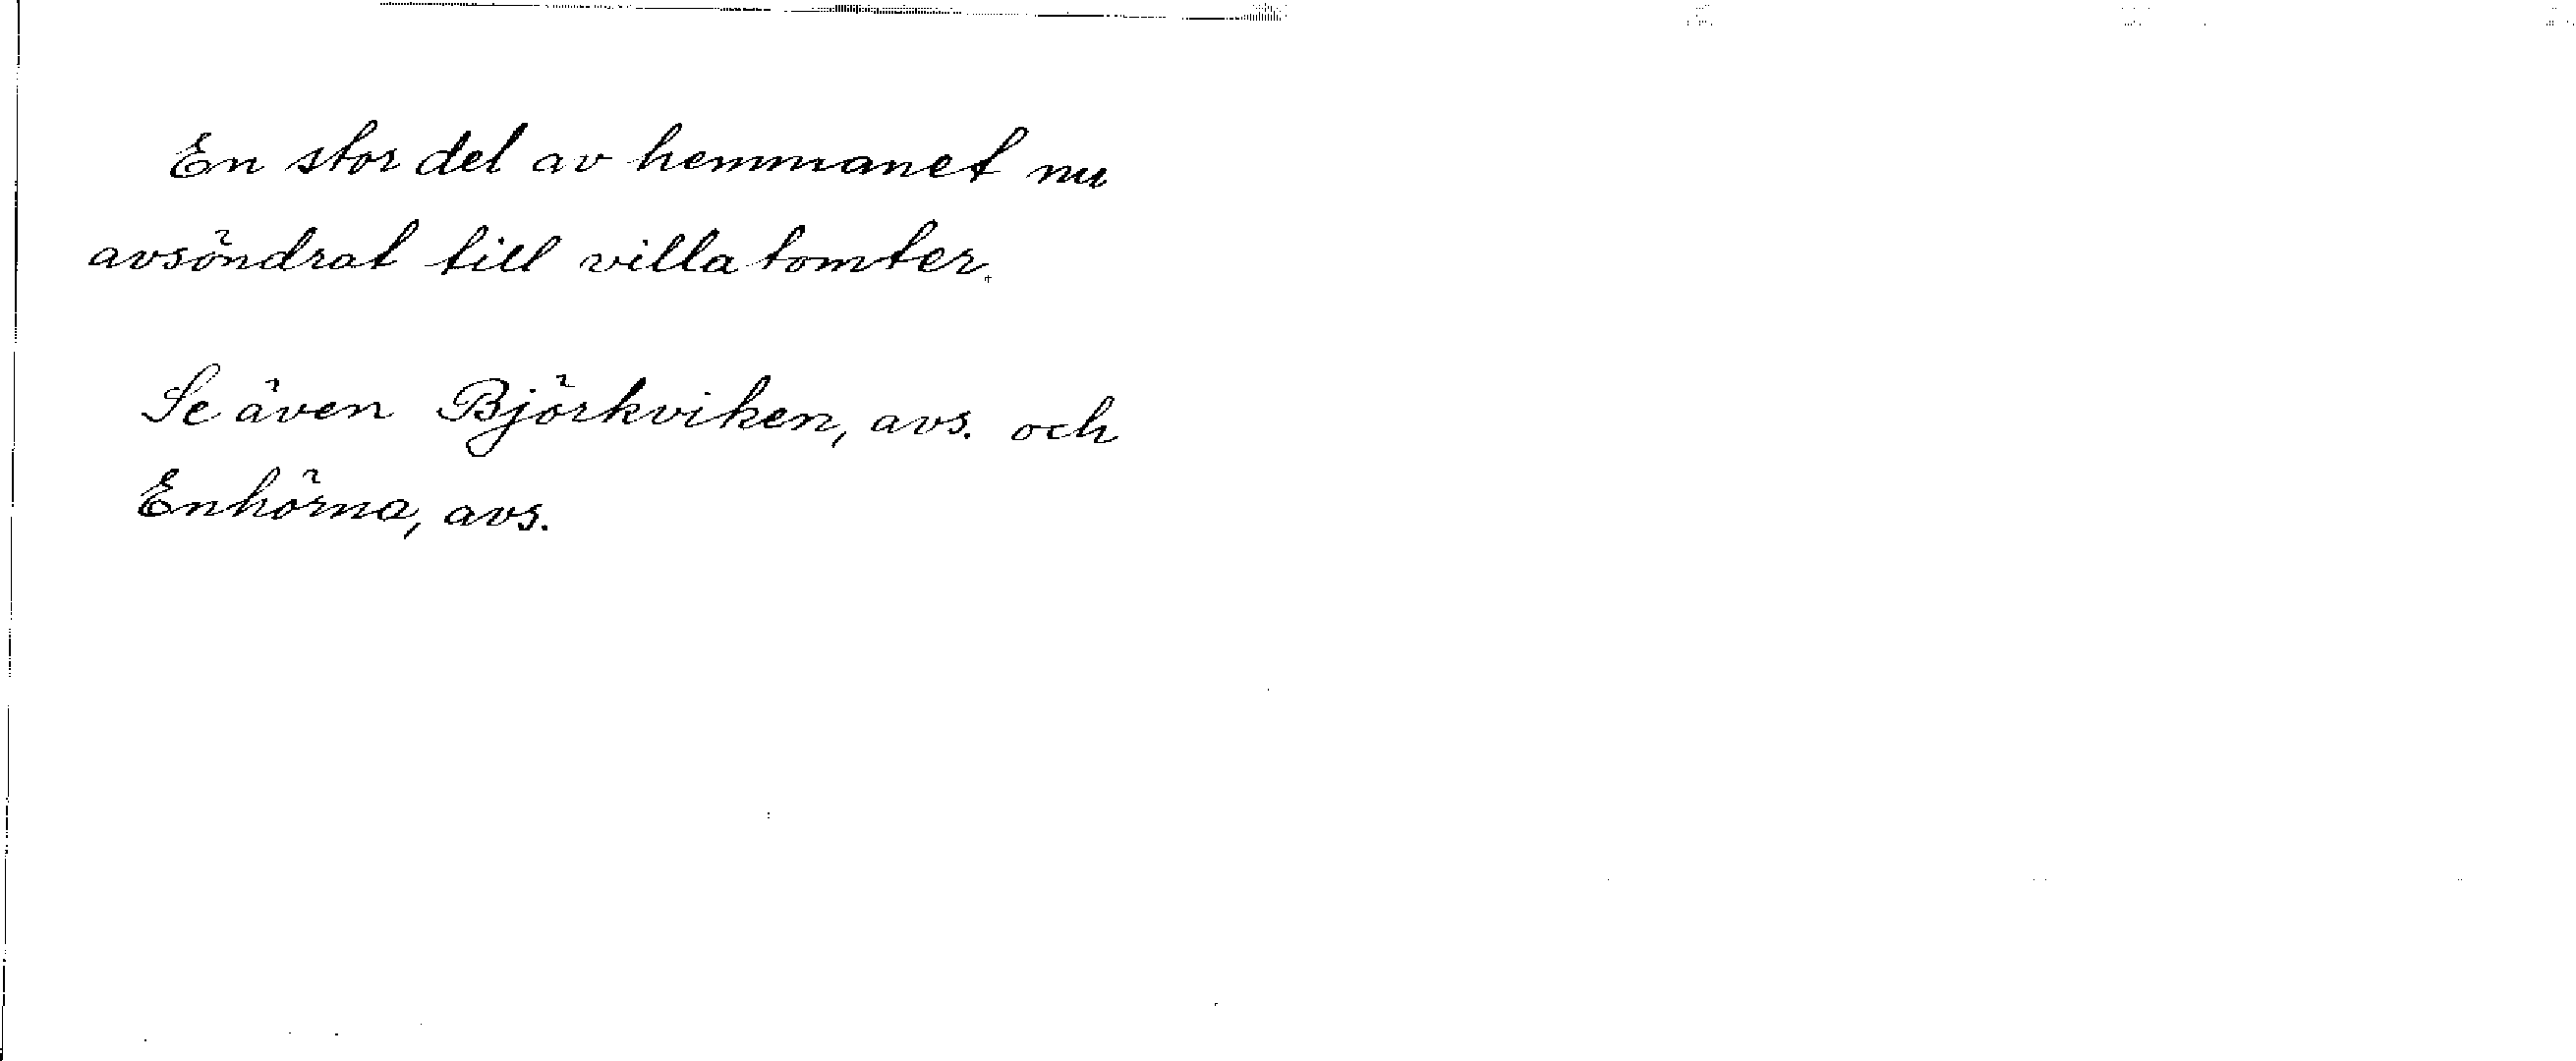 En stor del av hemmanet nu
avsöndrat till villatomter.
Se även Björkviken, avs. och
Enhörna, avs.